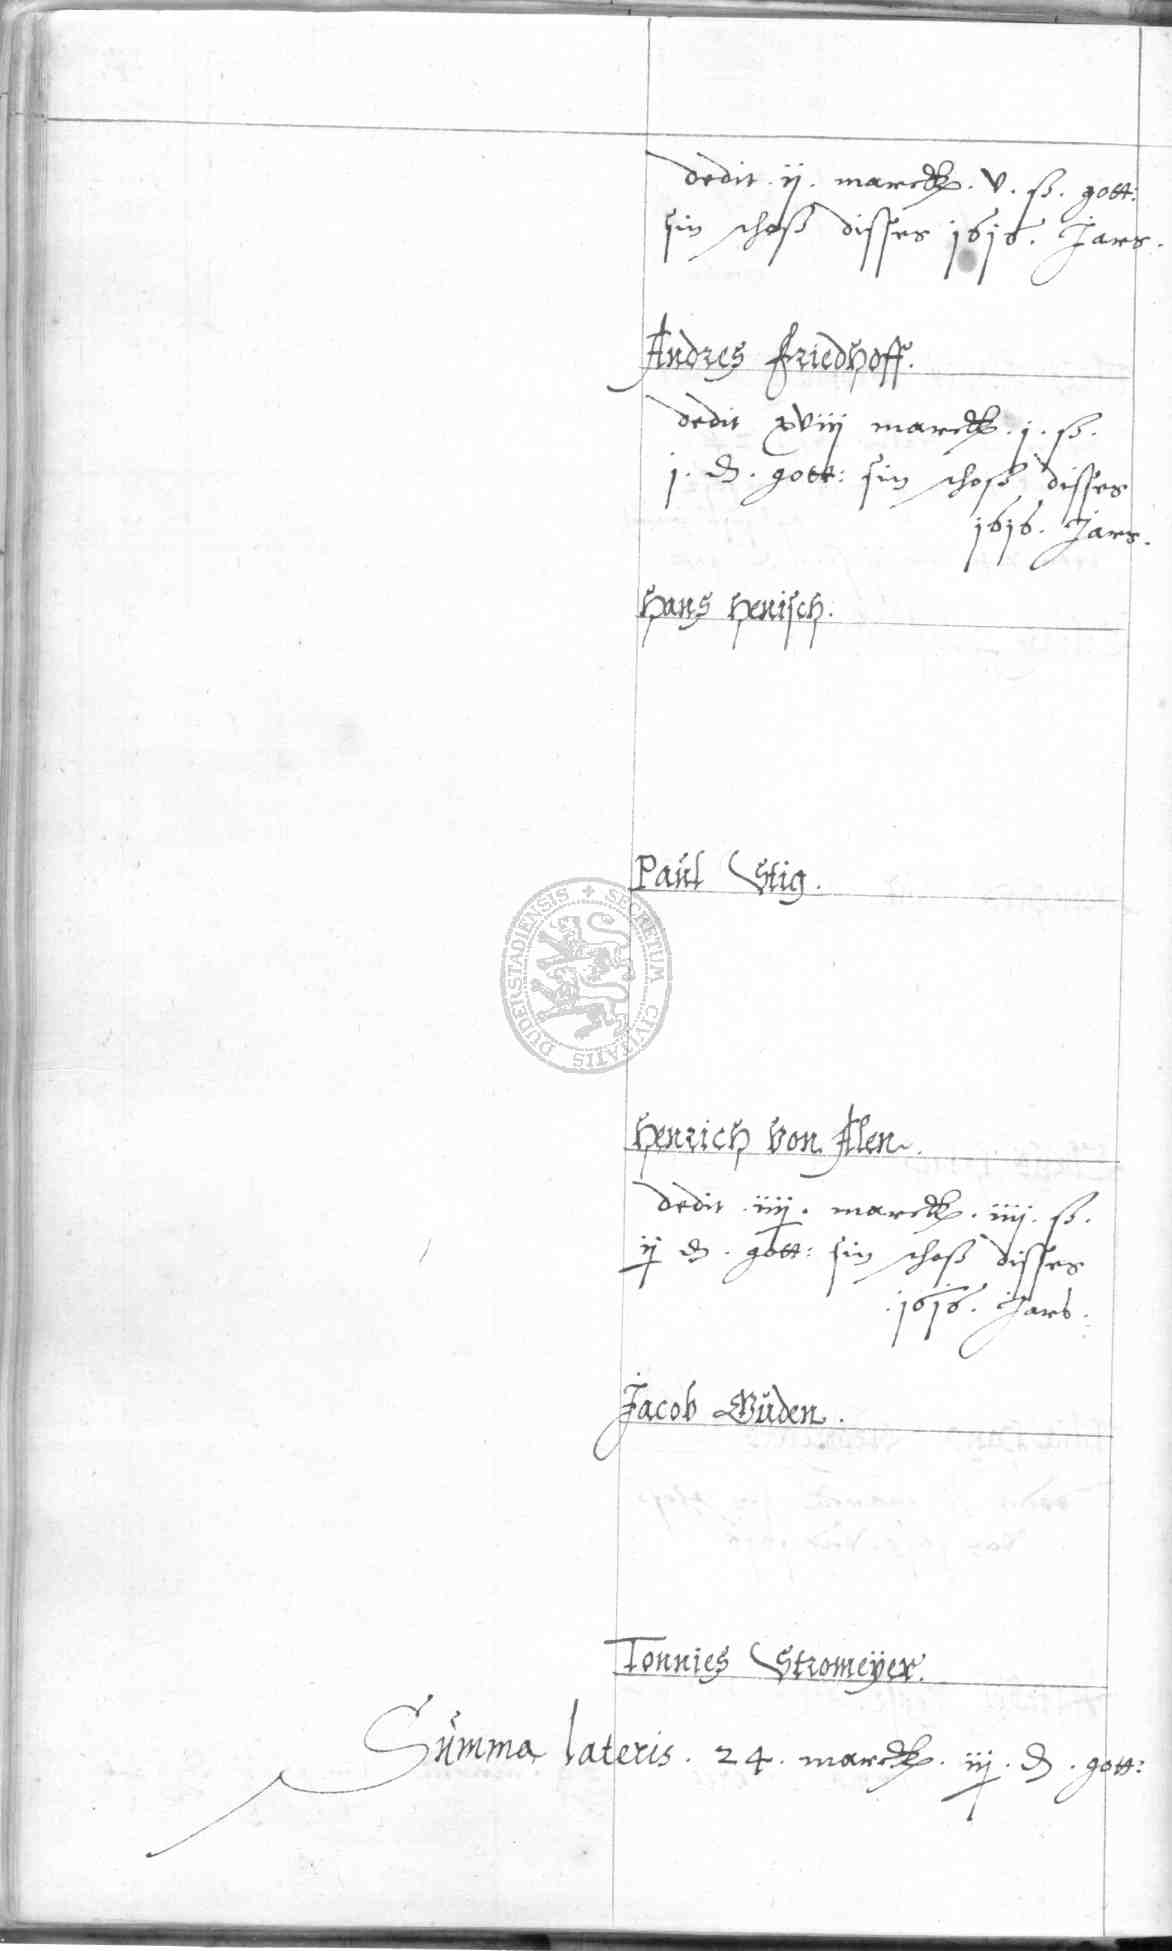 dedit . ij . marck . v . ß . gott:
sin schoß disses 1616. Jars.
Andres Friedhoff.
dedit xviij marck . j . ß .
j . d . gott: sin schoß disses
1616. Jars.
Hans Henisch.
Paul Stig.
SECRETUM CIVITATIS DUDERSTADIENSIS
Henrich von Alen.
dedit . iiij . marck . iiij . ß .
ij d . gott: sin schoß disses
. 1616 . Jars .
Jacob Güden.
Tonnies Stromeÿer.
Summa lateris . 24 . marck . iij . d . gott: